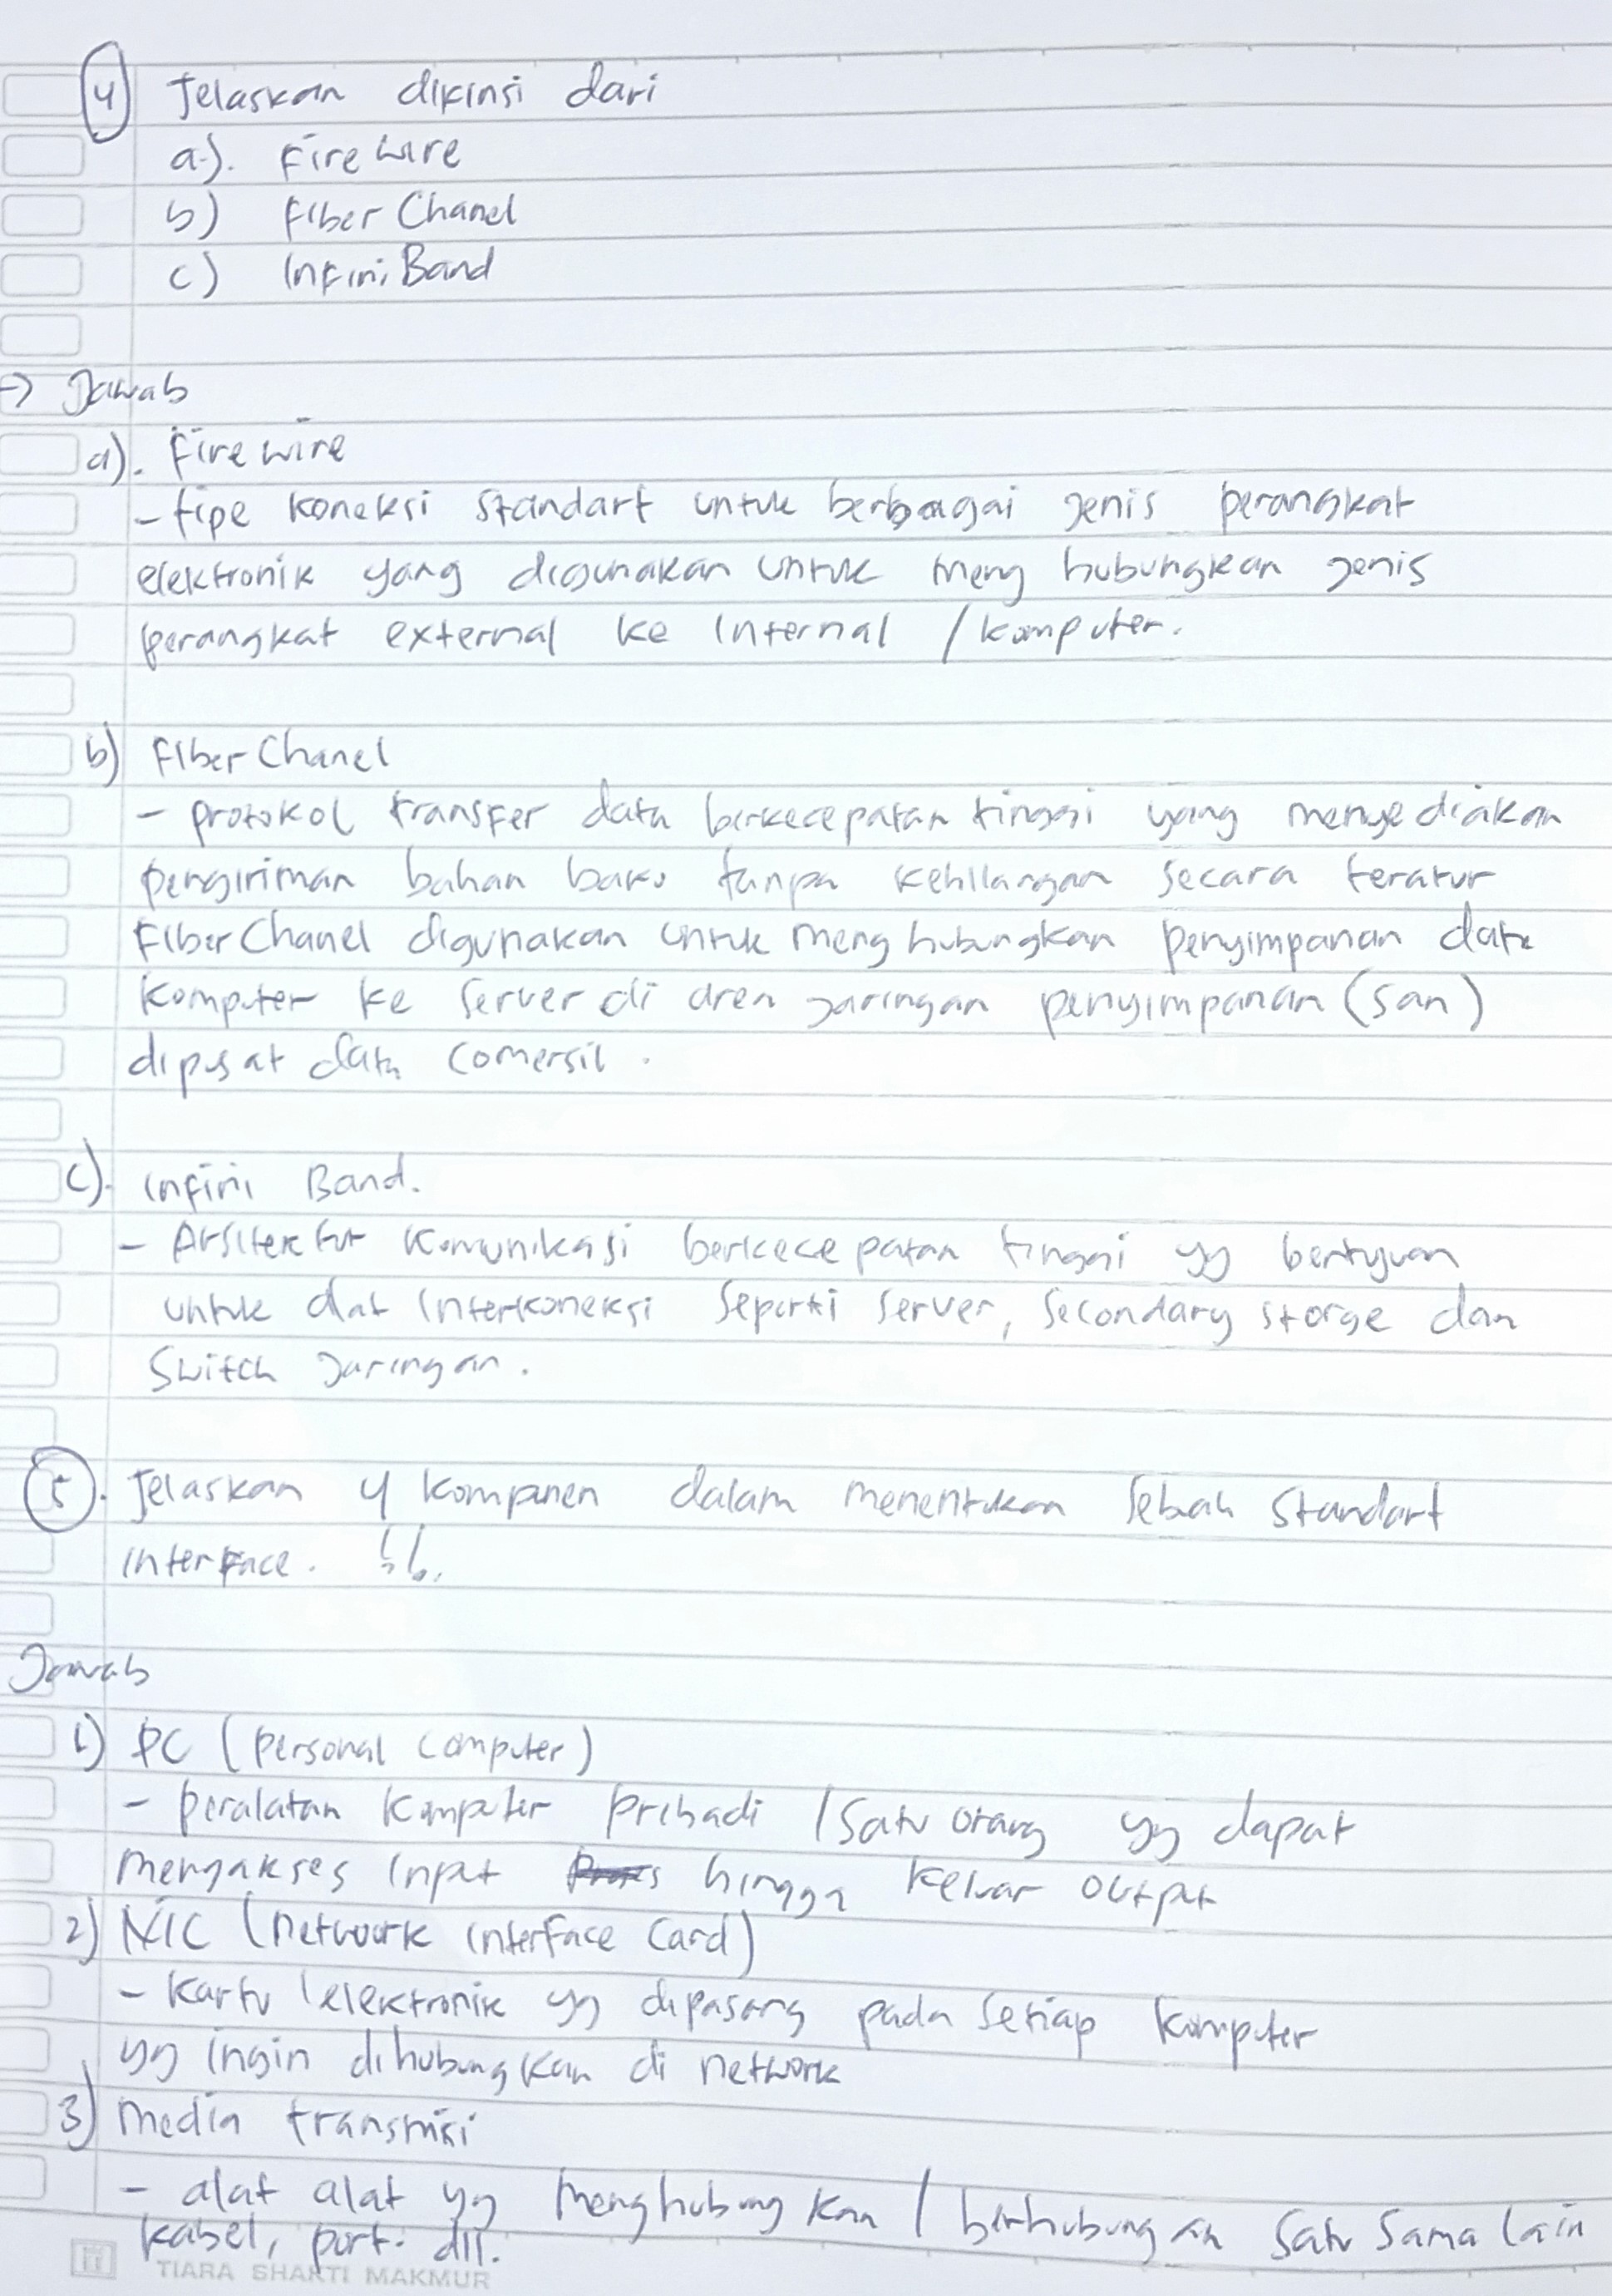 4 Jelaskan difinsi dari
a). Fire wire
b) Fiber Chanel
c) Infini Band
→ Jawab
a). Fire wire
- tipe koneksi standart untuk berbagai jenis perangkat
elektronik yang digunakan untuk meng hubungkan jenis
perangkat external ke Internal / komputer.
b) Fiber Chanel
- protokol transfer data berkecepatan tinggi yang menyediakan
pengiriman bahan baku tanpa kehilangan secara teratur
Fiber Chanel digunakan untuk meng hubungkan penyimpanan data
komputer ke server di area jaringan penyimpanan (San)
dipusat data comersil.
c). Infini Band.
- Arsitektur komunikasi berkecepatan tinggi yg bertujuan
untuk alat Interkoneksi Seperti Server, Secondary storge dan
Switch jaringan.
5). Jelaskan 4 komponen dalam menentukan Sebah Standart
interface.
Jawab
1) PC (personal computer)
- peralatan komputer pribadi / Satu orang yg dapat
mengakses input hingga keluar output
2) NIC (network interface Card)
- Kartu elektronik yg dipasang pada Setiap komputer
yg ingin dihubungkan di network
3) media transmisi
- alat alat yg menghubungkan / berhubungan Satu Sama lain
kabel, port. dll.
TIARA SHAKTI MAKMUR